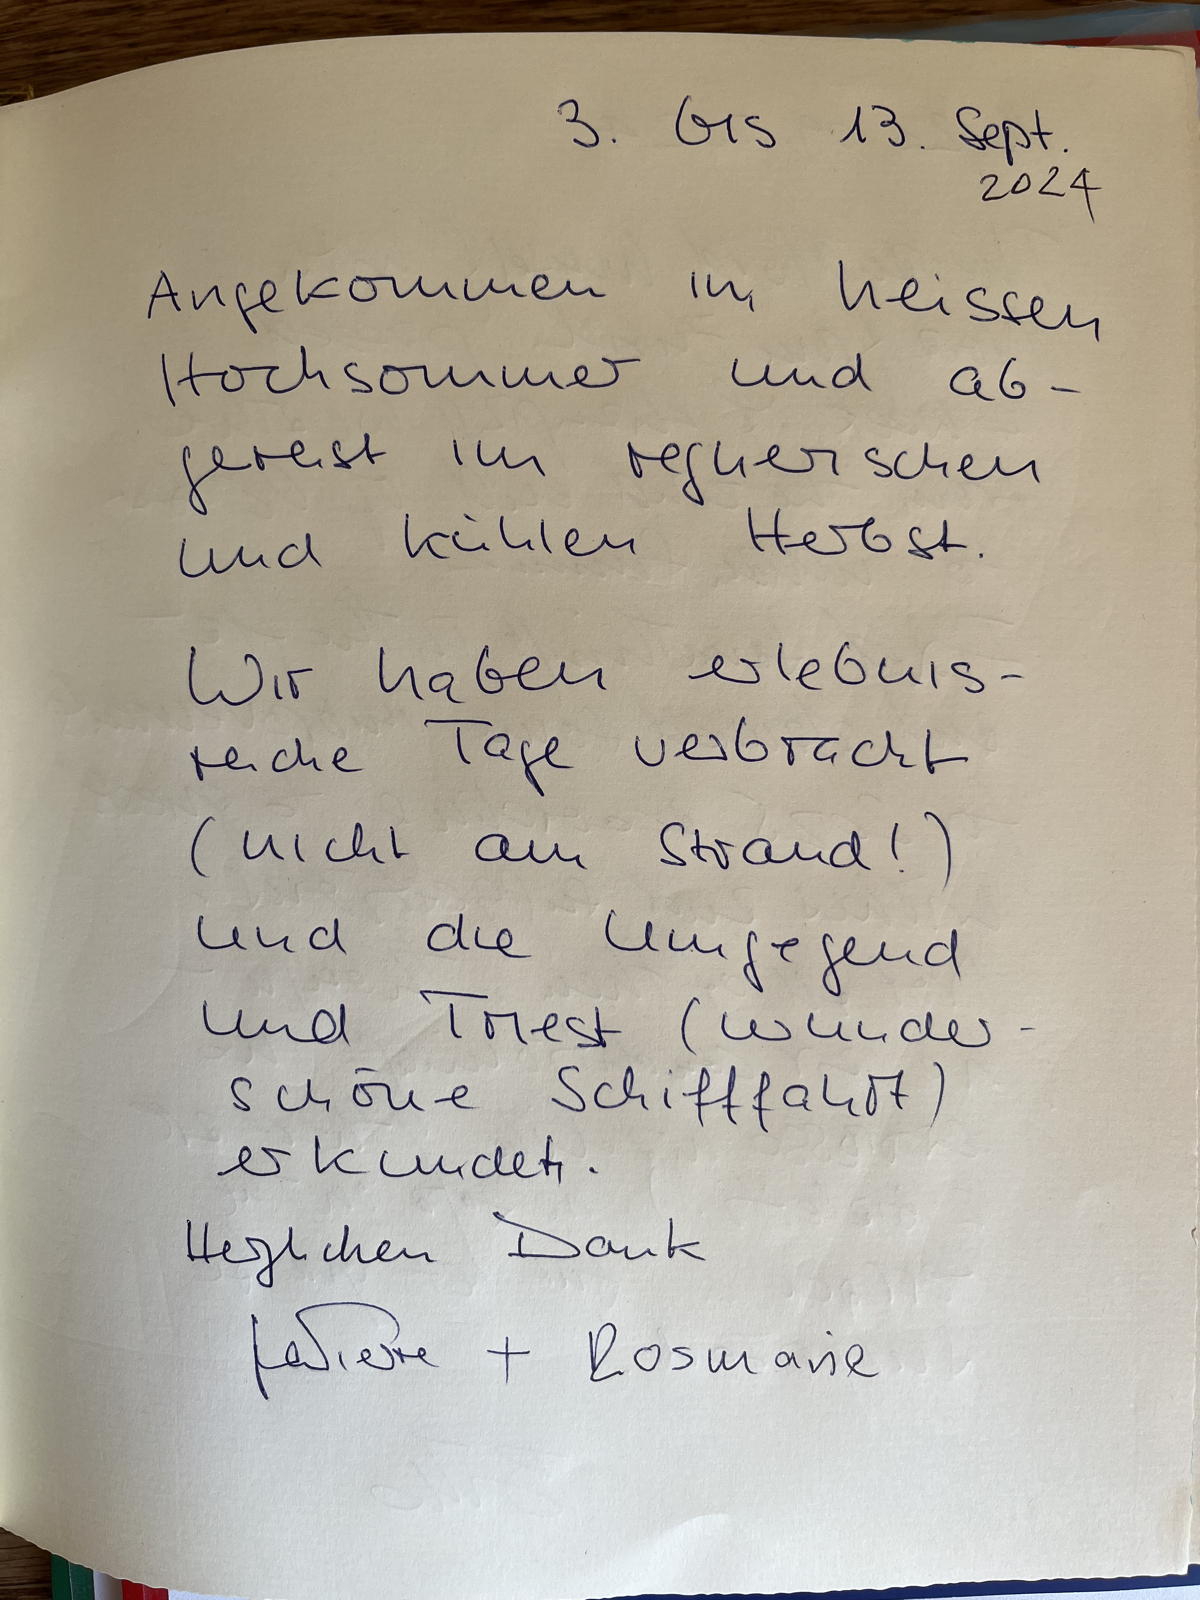 3. bis 13. Sept.
2024
Angekommen im heissen
Hochsommer und ab-
gereist im regnerischen
und kühlen Herbst.
Wir haben erlebnis-
reiche Tage verbracht
(nicht am Strand!)
und die Umgegend
und Triest (wunder-
schöne Schifffahrt)
erkundet.
Herzlichen Dank
+ Rosmarie